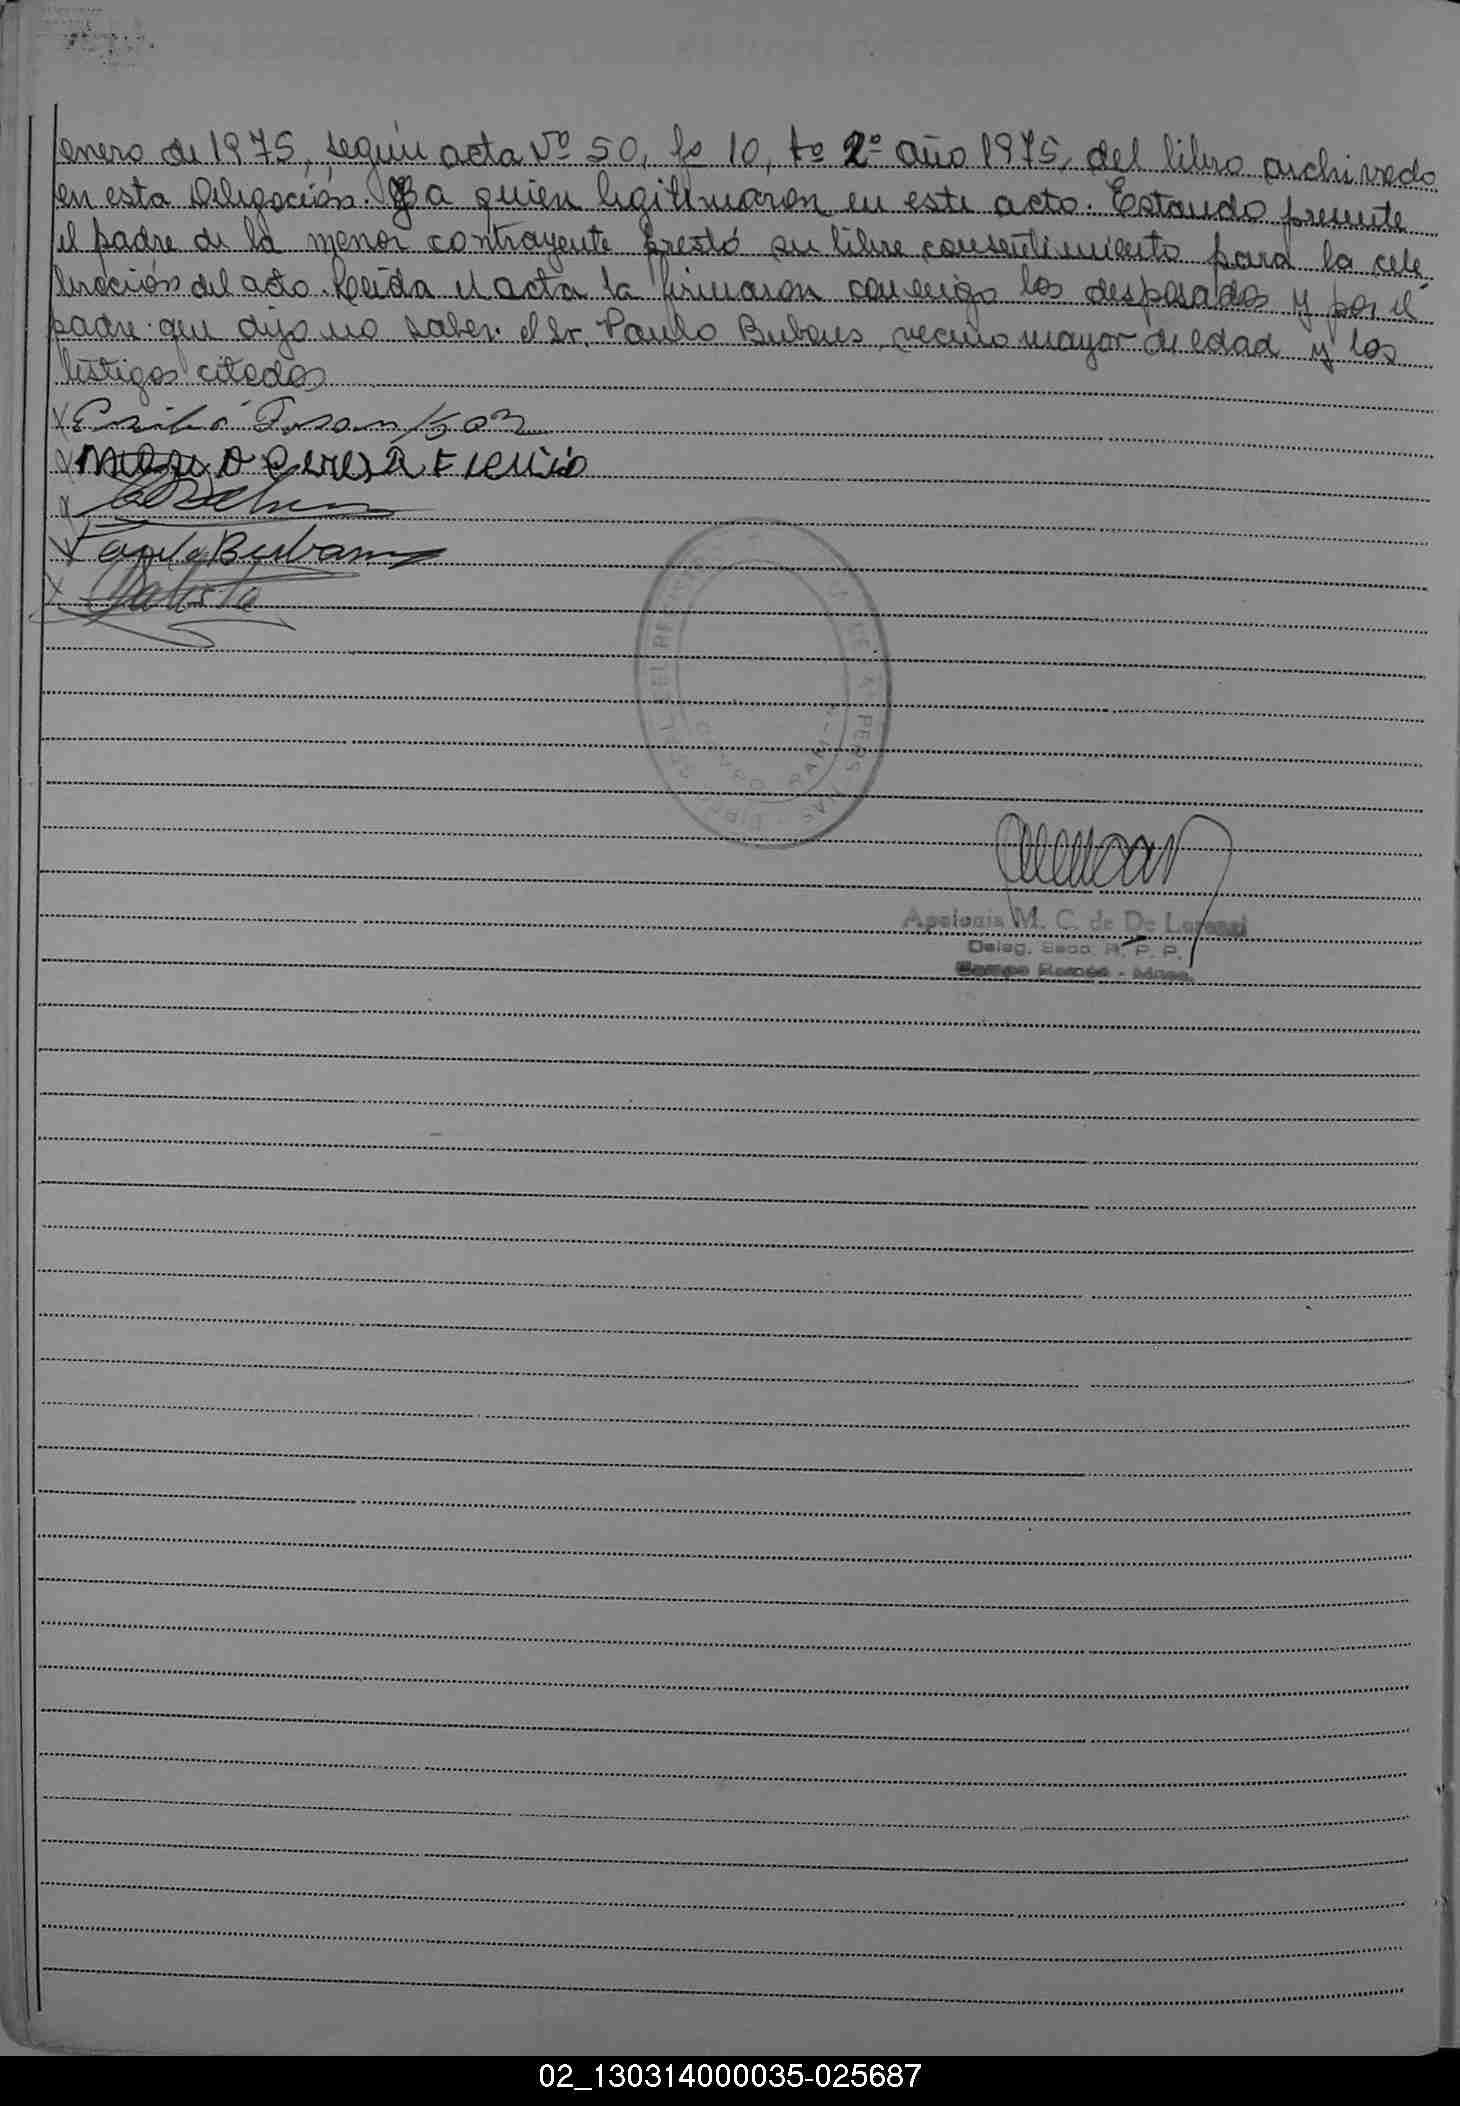 enero de 1975, según acta Nº 50, fº 10, tº 2º año 1975, del libro archivado
en esta Delegación. a quien legitimaron en este acto. Estando presente
el padre de la menor contrayente prestó su libre consentimiento para la cele
bración del acto. Leída el acta la firmaron conmigo los desposados y por el
padre que dijo no saber el Sr. Paulo Bubans, vecino mayor de edad y los
testigos citados
X
X
X
X Paulo Bubans
X Batista
DEL REGISTRO DE LAS PERSONAS
CAMPO RAMON
Apolonia M. C. de De Lorenzi
Deleg. Secc. R. P. P.
Campo Ramón - Mnes.
02_130314000035-025687